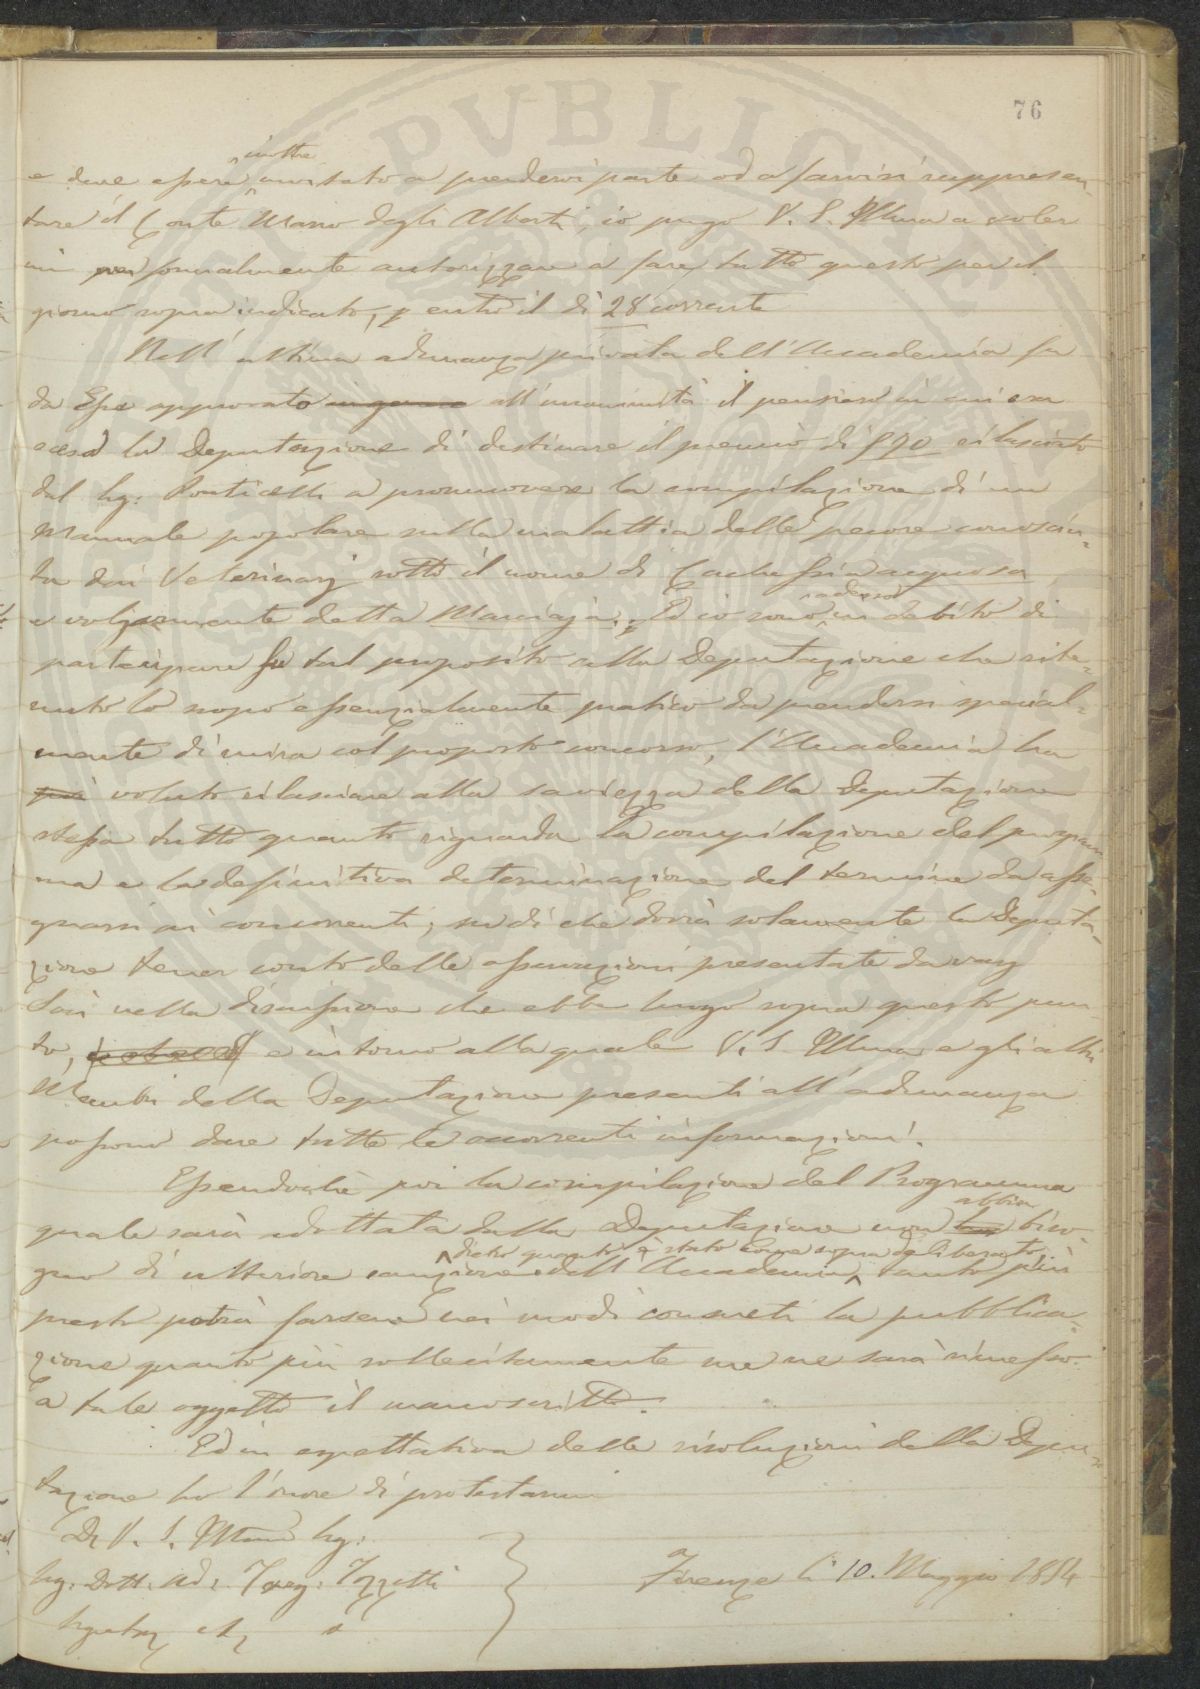 76
inoltre
e deve essere invitato a prendervi parte od a farvisi rappresen-
tare il Conte Mario degli Alberti, io prego V. S. Illma a voler
mi personalmente autorizzare a fare tutto questo per il
giorno sopra indicato, e entro il dì 28 corrente
Nell' ultima adunanza privata dell' Accademia fu
da Essa approvato all' unanimità il pensiero in cui era
scesa la Deputazione di destinare il premio di rilasciato
dal Sig: Ponticelli a promuovere la compilazione di un
Manuale popolare sulla malattia delle pecore conosciu-
ta dai Veterinarj sotto il nome di Cachessia acquosa
e volgarmente detta Marciaja. Ed io sono in debito di
partecipare su tal proposito alla Deputazione che rite-
nuto lo scopo essenzialmente pratico da prendersi special-
mente di mira col proposto concorso, l'Accademia ha
più voluto rilasciare alla saviezza della Deputazione
stessa tutto quanto riguarda la compilazione del program
ma e la definitiva determinazione del termine da asse-
gnarsi ai concorrenti, su di che dovrà solamente la Deputa-
zione tener conto delle osservazioni presentate da varj
Socj nella discussione che ebbe luogo sopra questo pun-
to, e intorno alla quale V. S. Illma e gli altri
Membri della Deputazione presenti all' adunanza
possono dare tutte le occorrenti informazioni.
Essendochè poi la compilazione del Programma
abbia
quale sarà adottata dalla Deputazione non ha biso-
dietro quanto è stato come sopra deliberato,
gno di ulteriore sanzione dell' Accademia, tanto più
presto potrà farsene nei modi consueti la pubblica-
zione quanto più sollecitamente me ne sarà rimesso
a tale oggetto il manoscritto.
Ed in aspettativa delle risoluzioni della Depu-
tazione ho l'onore di protestarmi
Di V. S. Illma Sig:
Sig. Dott. Ad. Targ. Tozzetti
Firenze li 10. Maggio 1854